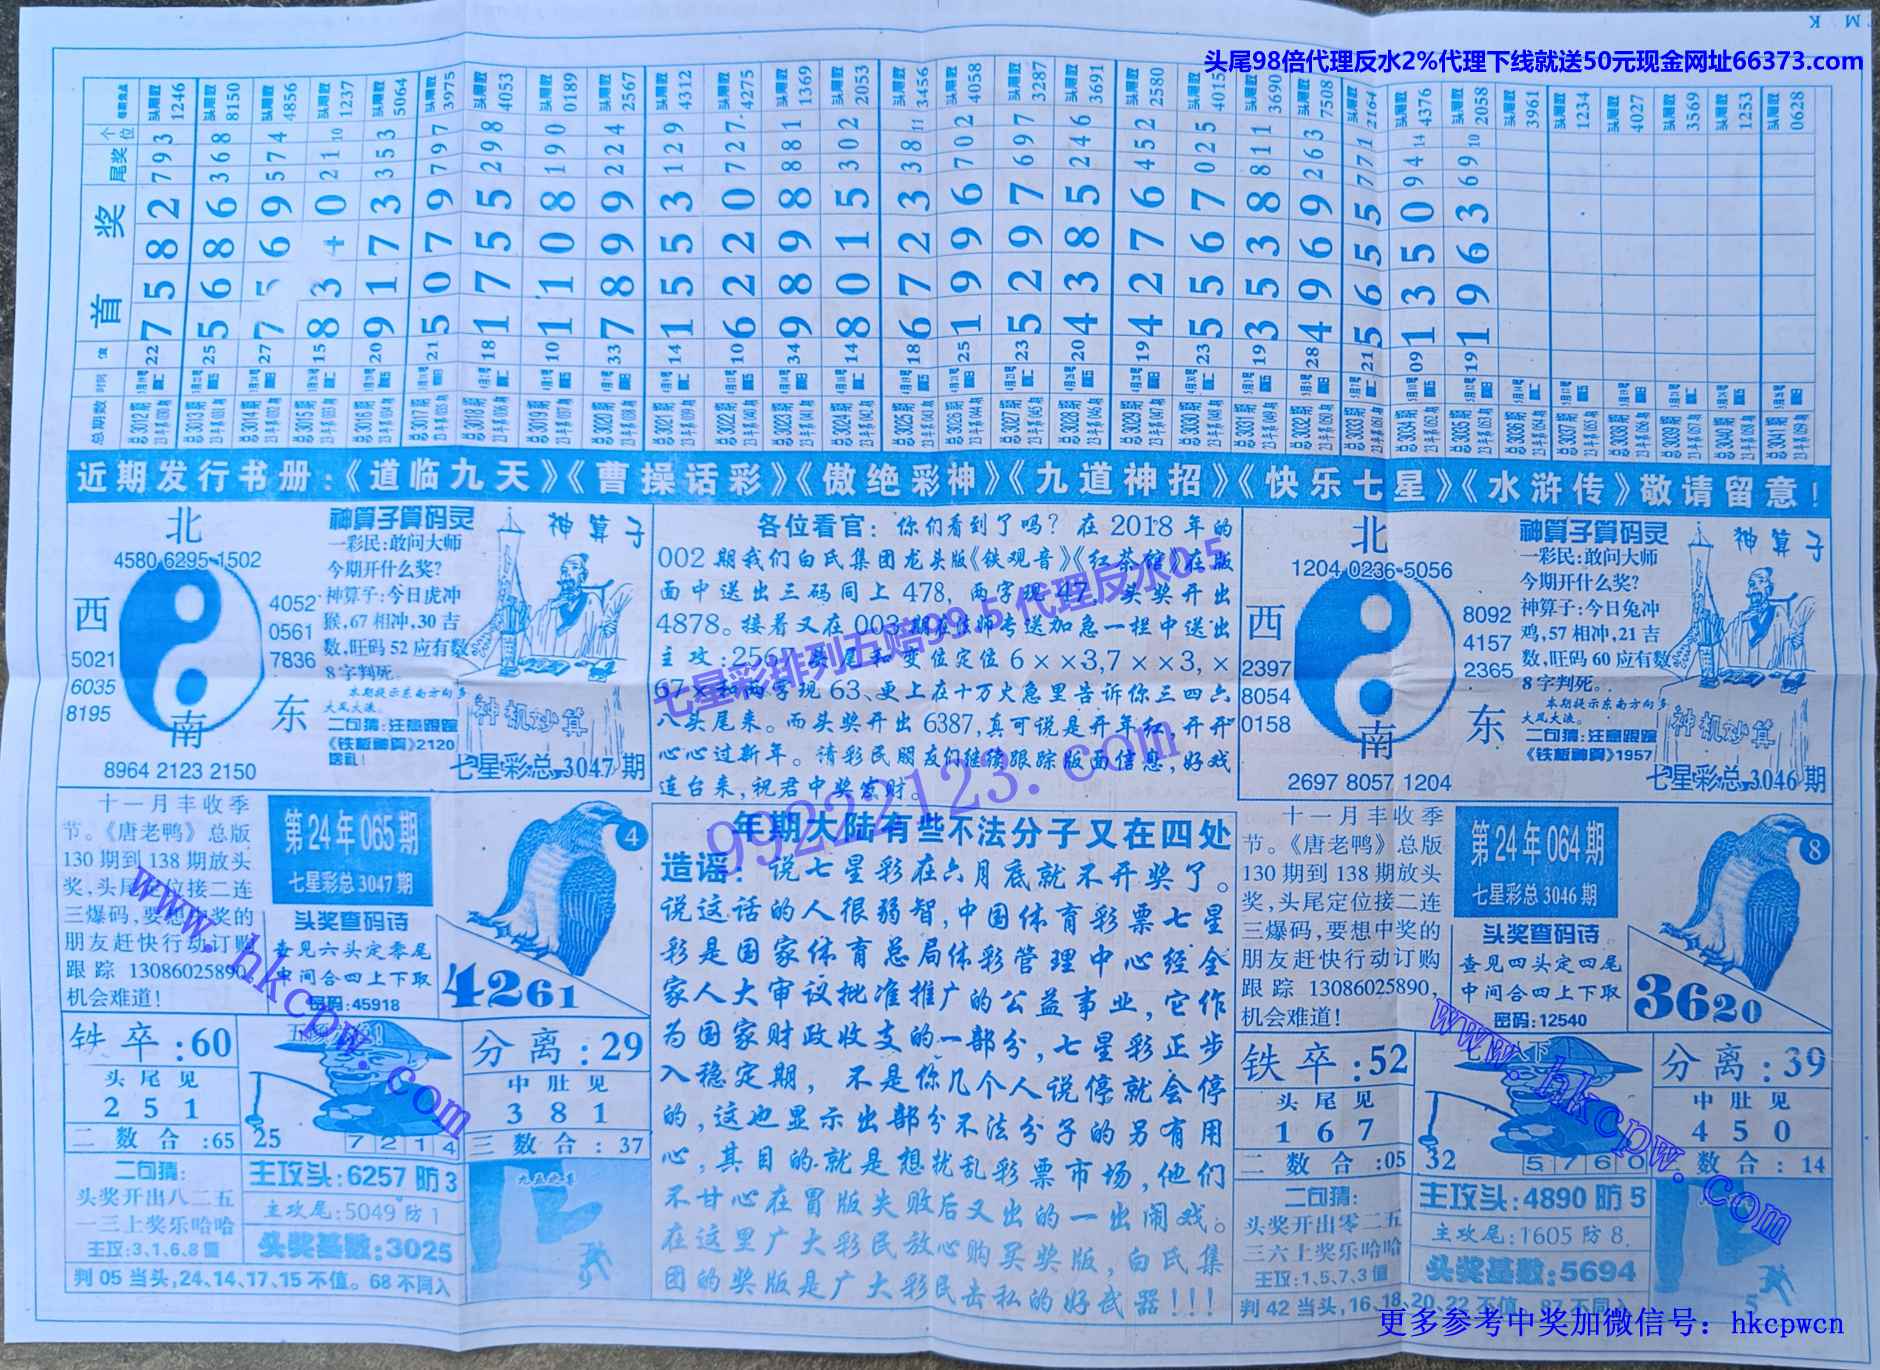 K M
头尾98倍代理反水2%代理下线就送50元现金网址66373.com
总期数
时间
值
首奖
尾奖
个位
总3012期 22 7582 793 头尾数 1246
总3013期 25 5686 368 头尾数 8150
总3014期 27 7569 574 头尾数 4856
总3015期 15 83 0 21 10 头尾数 1237
总3016期 20 9173 353 头尾数 5064
总3017期 21 5079 797 头尾数 3975
总3018期 18 1755 298 头尾数 4053
总3019期 10 1108 190 头尾数 0189
总3020期 33 7899 224 头尾数 2567
总3021期 14 1553 129 头尾数 4312
总3022期 10 6220 727 头尾数 4275
总3023期 34 9898 881 头尾数 1369
总3024期 14 8015 302 头尾数 2053
总3025期 18 6723 38 11 头尾数 3456
总3026期 25 1996 702 头尾数 4058
总3027期 23 5297 697 头尾数 3287
总3028期 20 4385 246 头尾数 3691
总3029期 19 4276 452 头尾数 2580
总3030期 23 5567 025 头尾数 4015
总3031期 19 3538 811 头尾数 3690
总3032期 28 4969 263 头尾数 7508
总3033期 21 5655 771 头尾数 2164
总3034期 09 1350 94 14 头尾数 4376
总3035期 19 1963 69 10 头尾数 2058
总3036期 头尾数 3961
总3037期 头尾数 1234
总3038期 头尾数 4027
总3039期 头尾数 3569
总3040期 头尾数 1253
总3041期 头尾数 0628
近期发行书册:《道临九天》《曹操话彩》《傲绝彩神》《九道神招》《快乐七星》《水浒传》敬请留意!
北
4580 6295 1502
西
5021
6035
8195
4052
0561
7836
东
南
8964 2123 2150
神算子算码灵
一彩民:敢问大师
今期开什么奖?
神算子:今日虎冲
猴,67相冲,30吉
数,旺码52应有数
8字判死。
本期提示东南方向多
大风大浪。
二句猜:注意跟踪
《铁板神算》2120
神算子
神机妙算
七星彩总3047期
各位看官:你们看到了吗?在2018年的
002期我们白氏集团龙头版《铁观音》《红茶馆》在版
面中送出三码同上478,两字现47,头奖开出
4878。接着又在003期在
送加急一栏中送出
主攻:256
头尾和变位定位6××3,7××3,×
67×和两字现63、更上在十万火急里告诉你三四六
八头尾来。而头奖开出6387,真可说是开年红,开开
心心过新年。请彩民朋友们继续跟踪版面信息,好戏
连台来,祝君中奖发财。
七星彩排列五赔99.5代理反水0.5
99222123.com
北
1204 0236 5056
西
2397
8054
0158
8092
4157
2365
东
南
2697 8057 1204
神算子算码灵
一彩民:敢问大师
今期开什么奖?
神算子:今日兔冲
鸡,57相冲,21吉
数,旺码60应有数
8字判死。
本期提示东南方向多
大风大浪。
二句猜:注意跟踪
《铁板神算》1957
神算子
神机妙算
七星彩总3046期
十一月丰收季
节。《唐老鸭》总版
130期到138期放头
奖,头尾定位接二连
三爆码,要想中奖的
朋友赶快行动订购
跟踪13086025890,
机会难道!
第24年065期
七星彩总3047期
头奖查码诗
查见六头定零尾
中间合四上下取
密码:45918
4
4261
www.hkcpw.com
铁卒:60
头尾见
251
二数合:65
25
7214
分离:29
中肚见
381
三数合:37
二句猜:
头奖开出八二五
一三上奖乐哈哈
主攻:3、1、6、8值
主攻头:6257防3
主攻尾:5049防1
头奖基数:3025
判05当头,24、14、17、15不值。68不同入
年期大陆有些不法分子又在四处
造谣:说七星彩在六月底就不开奖了。
说这话的人很弱智,中国体育彩票七星
彩是国家体育总局体彩管理中心经全
家人大审议批准推广的公益事业,它作
为国家财政收支的一部分,七星彩正步
入稳定期,不是你几个人说停就会停
的,这也显示出部分不法分子的另有用
心,其目的就是想扰乱彩票市场,他们
不甘心在冒版失败后又出的一出闹戏。
在这里广大彩民放心购买奖版,白氏集
团的奖版是广大彩民击私的好武器!!!
十一月丰收季
节。《唐老鸭》总版
130期到138期放头
奖,头尾定位接二连
三爆码,要想中奖的
朋友赶快行动订购
跟踪13086025890,
机会难道!
第24年064期
七星彩总3046期
头奖查码诗
查见四头定四尾
中间合四上下取
密码:12540
8
3620
www.hkcpw.com
铁卒:52
头尾见
167
二数合:05
32
5760
分离:39
中肚见
450
数合:14
二句猜:
头奖开出零二五
三六上奖乐哈哈
主攻:1、5、7、3值
主攻头:4890防5
主攻尾:1605防8
头奖基数:5694
判42当头,16、18、20、22不值。87不同入
更多参考中奖加微信号:hkcpwcn